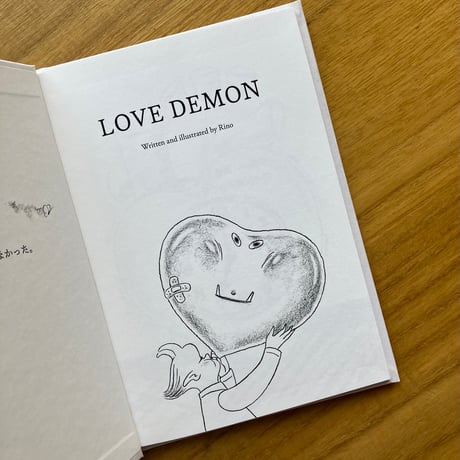 LOVE DEMON
Written and illustrated by Rino
かった。